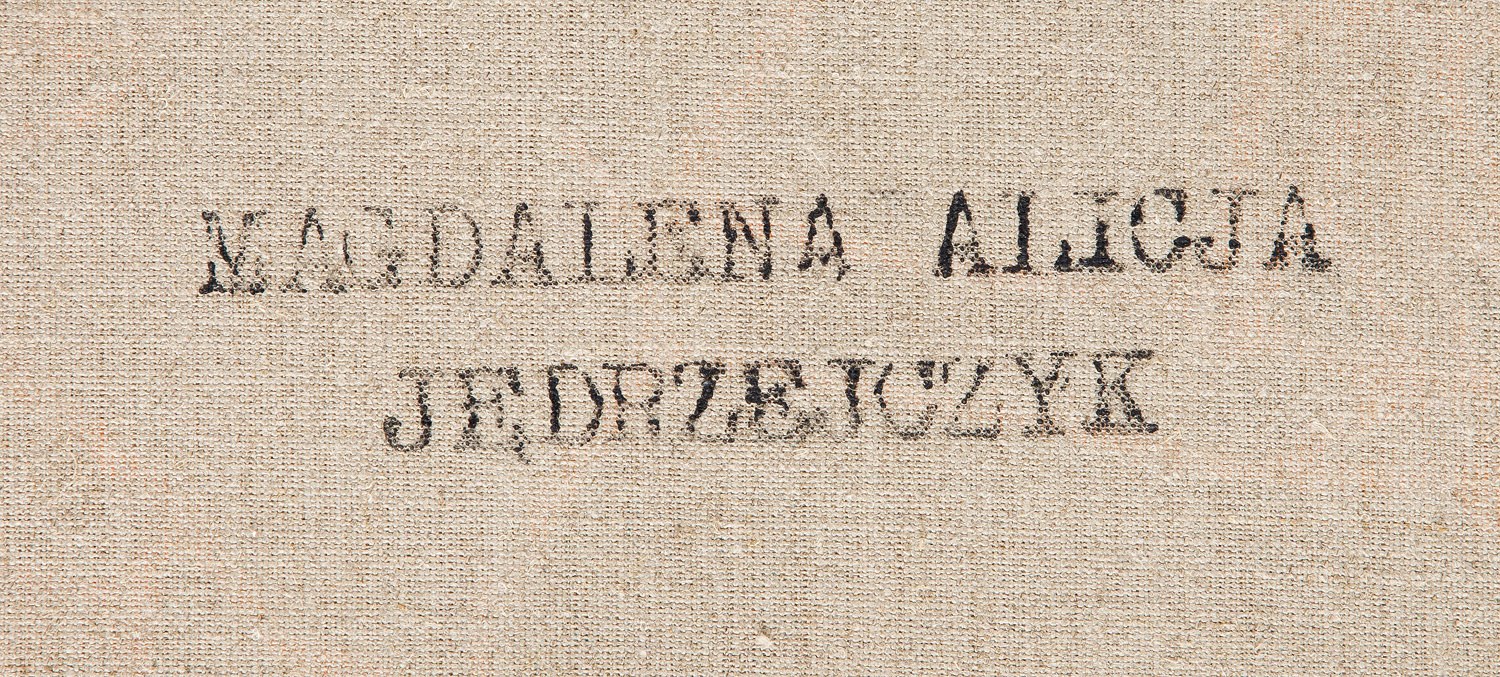 MAGDALENA ALICJA
JĘDRZEJCZYK